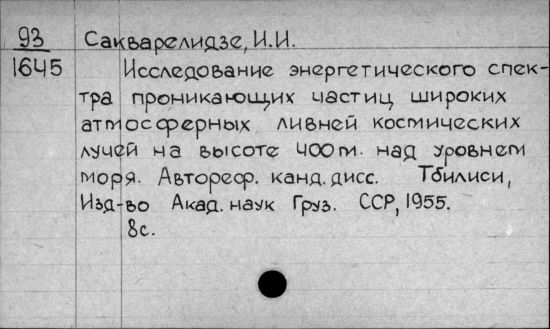 93 Сакварелидзе, И.И.
1645 Исследование энергетического спек-
тра проникающих частиц широких
атмосферных ливней космических
лучей на высоте 400 м. над уровнем
моря. Автореф. канд. дисс. Тбилиси,
Изд-во Акад. наук Груз. ССР, 1955.
8с.